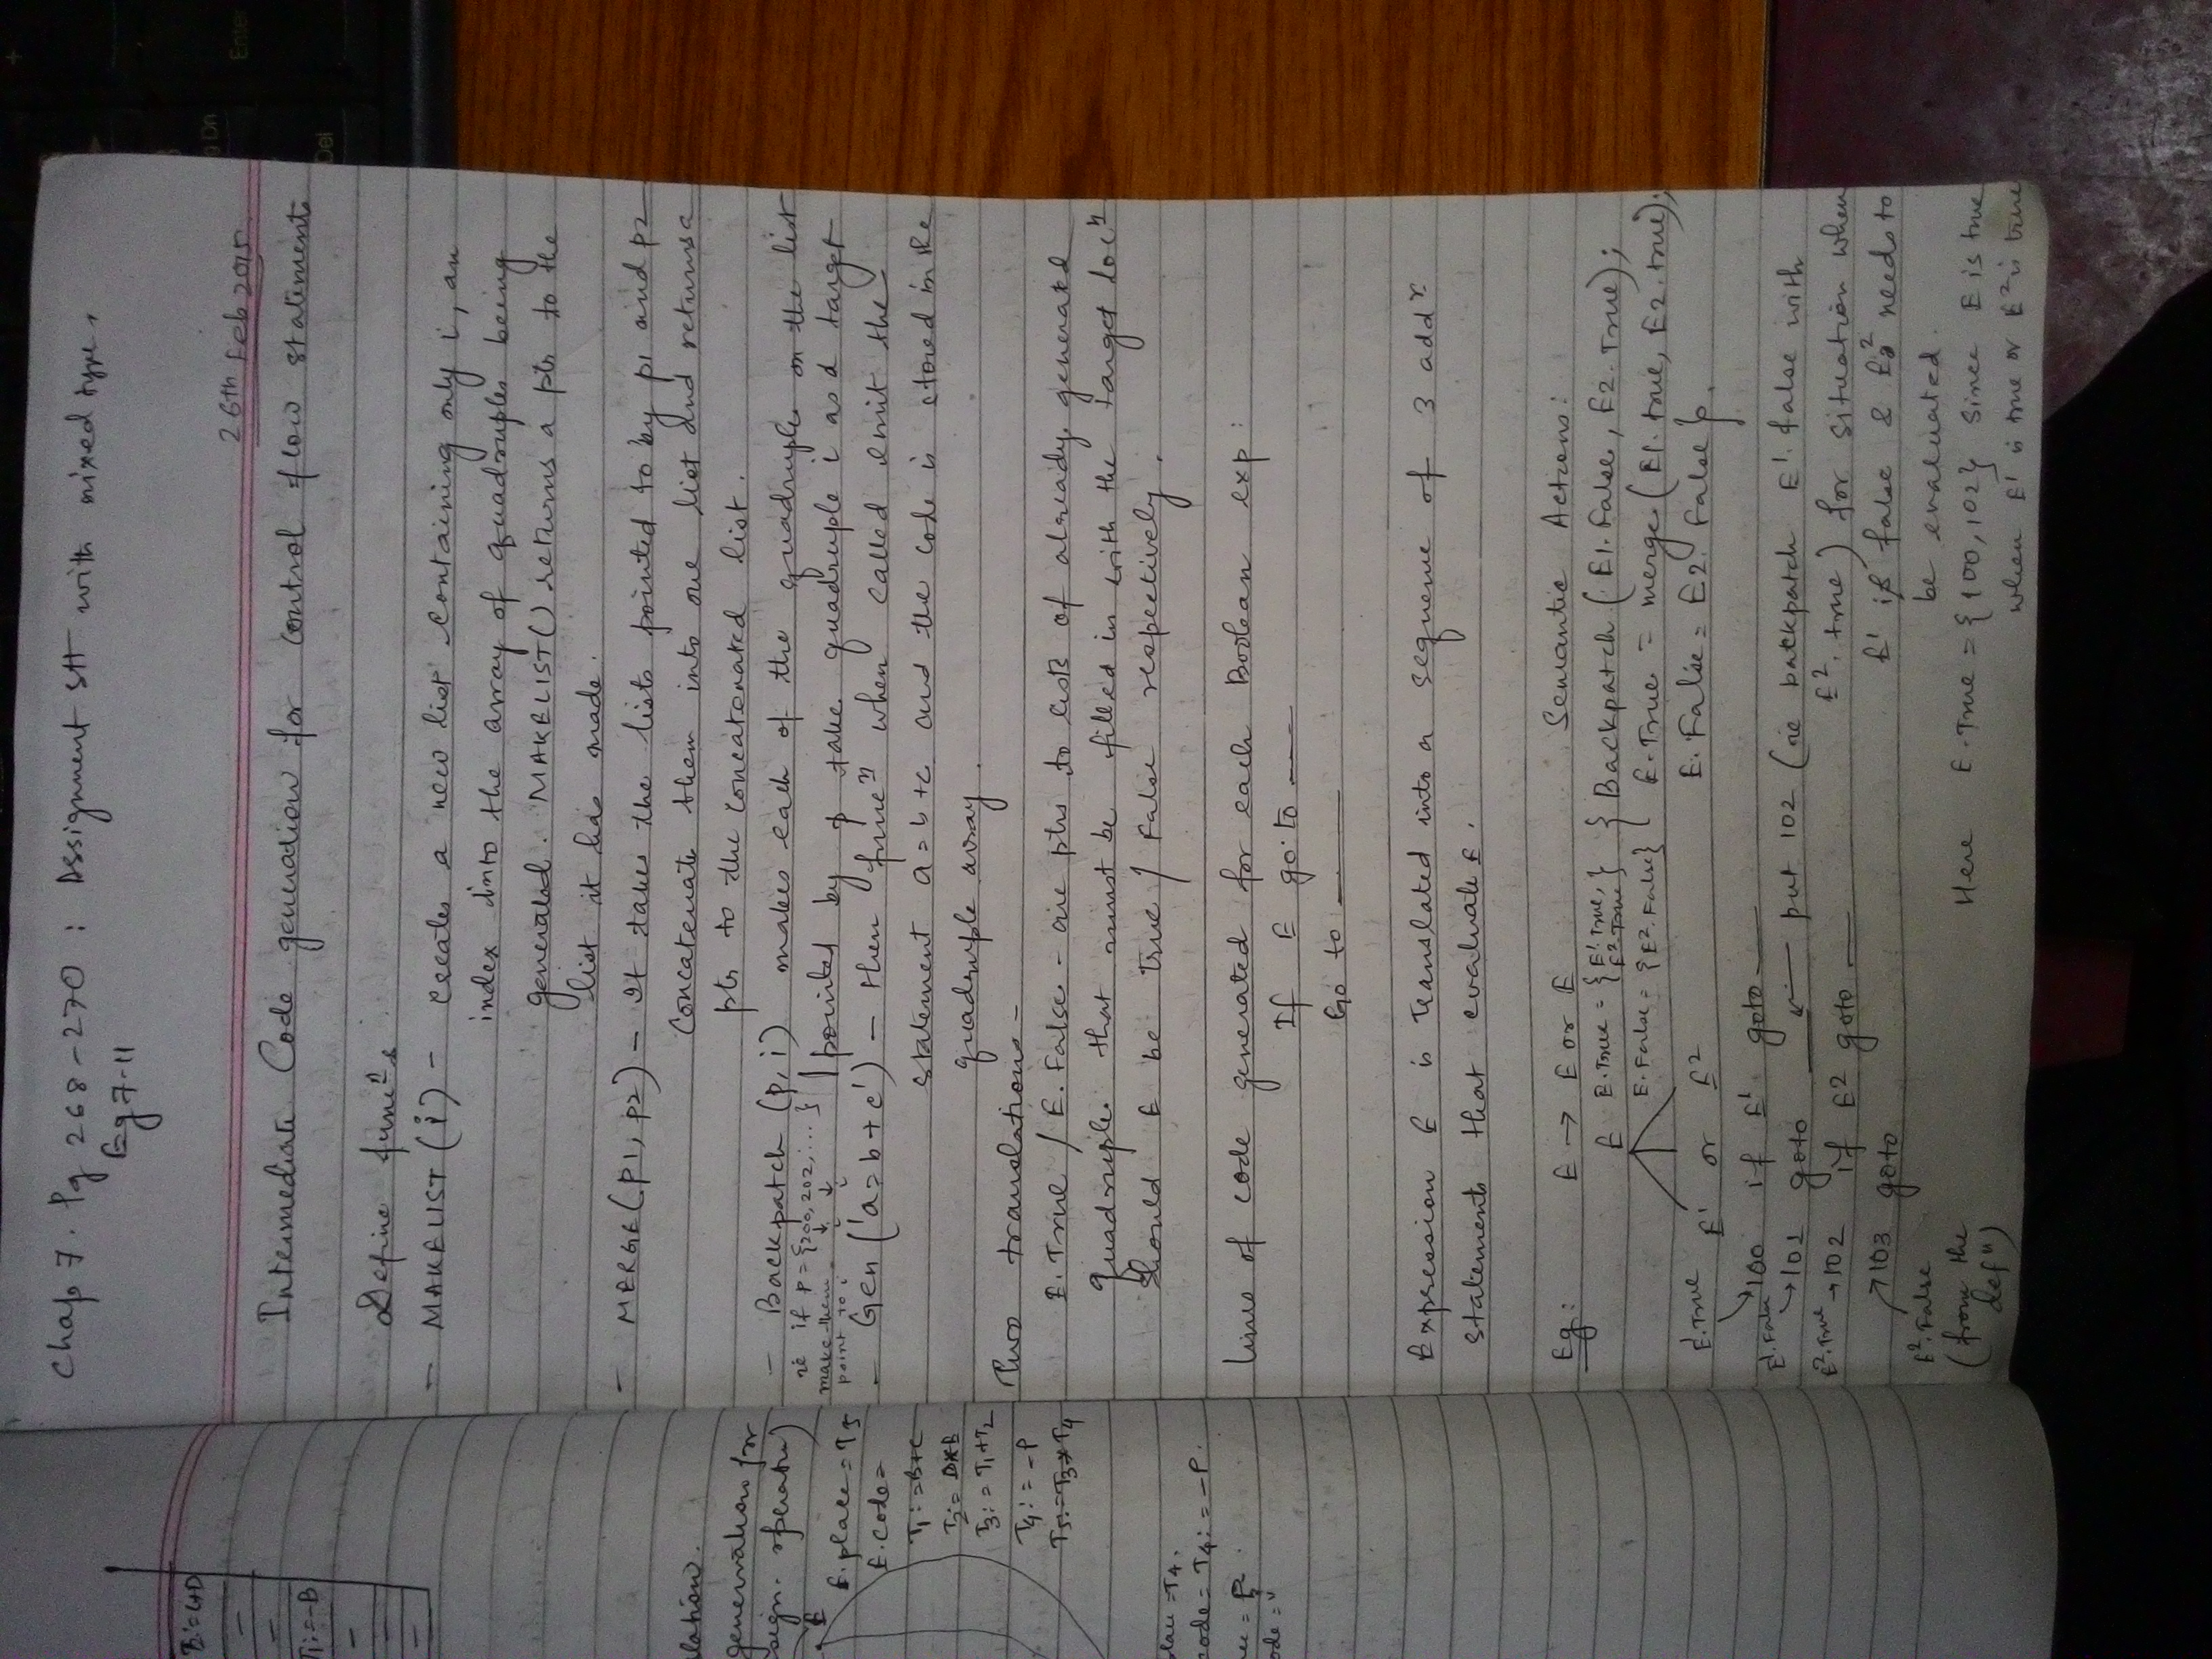 Chap 7. Pg 268-270 : Assignment stt with mixed type,
Eg 7-11
26th Feb 2015
Intermediate Code generation for control flow statements
Define funcⁿs
- MAKELIST (i) - creates a new list containing only i, an
index into the array of quadruples being
generated. MAKELIST() returns a ptr to the
list it has made.
- MERGE(P1, P2) - It takes the lists pointed to by p1 and p2
concatenate them into one list and returns a
ptr to the concatenated list.
- Backpatch (p, i) makes each of the quadruples on the list
ie if p = {200, 202, ... } pointed by p take quadruple i as a target
make them ↓ ↓
point to i i i
- Gen ('a=b+c') - then funcⁿ when called emit the
statement a=b+c and the code is stored in the
quadruple array.
Two translations -
E.True / E.False - are ptrs to lists of already generated
quadruples that must be filled in with the target locⁿ
should E be true / False respectively.
lines of code generated for each Boolean exp :
If E go to ___
Go to ___
Expression E is translated into a sequence of 3 addʳ
statements that evaluate E.
Eg: E → E or E Semantic Actions:
E E.True = {E¹.True, E².True} { Backpatch (E1.False, E2.True);
E.False = {E².False} E.True = merge (E1.true, E2.true);
E¹.True E¹ or E² E.False = E2.False }.
→100 if E¹ goto ___
E¹.False →101 goto ___ ← put 102 (ie backpatch E¹.false with
E².True →102 if E2 goto ___ E².true) for situation when
→103 goto E¹ is false & E² needs to
E².False be evaluated.
(from the Here E.True = {100, 102} Since E is true
defⁿ) when E¹ is true or E² is true
T1:=-B
lation.
generation for
operator)
E
E.place = T5
E.code =
T1:=B+C
T2:= D*E
T3:= T1+T2
T4:= -P
T5:=T3*T4
=T4.
code= T4:= -P.
Enter
Del